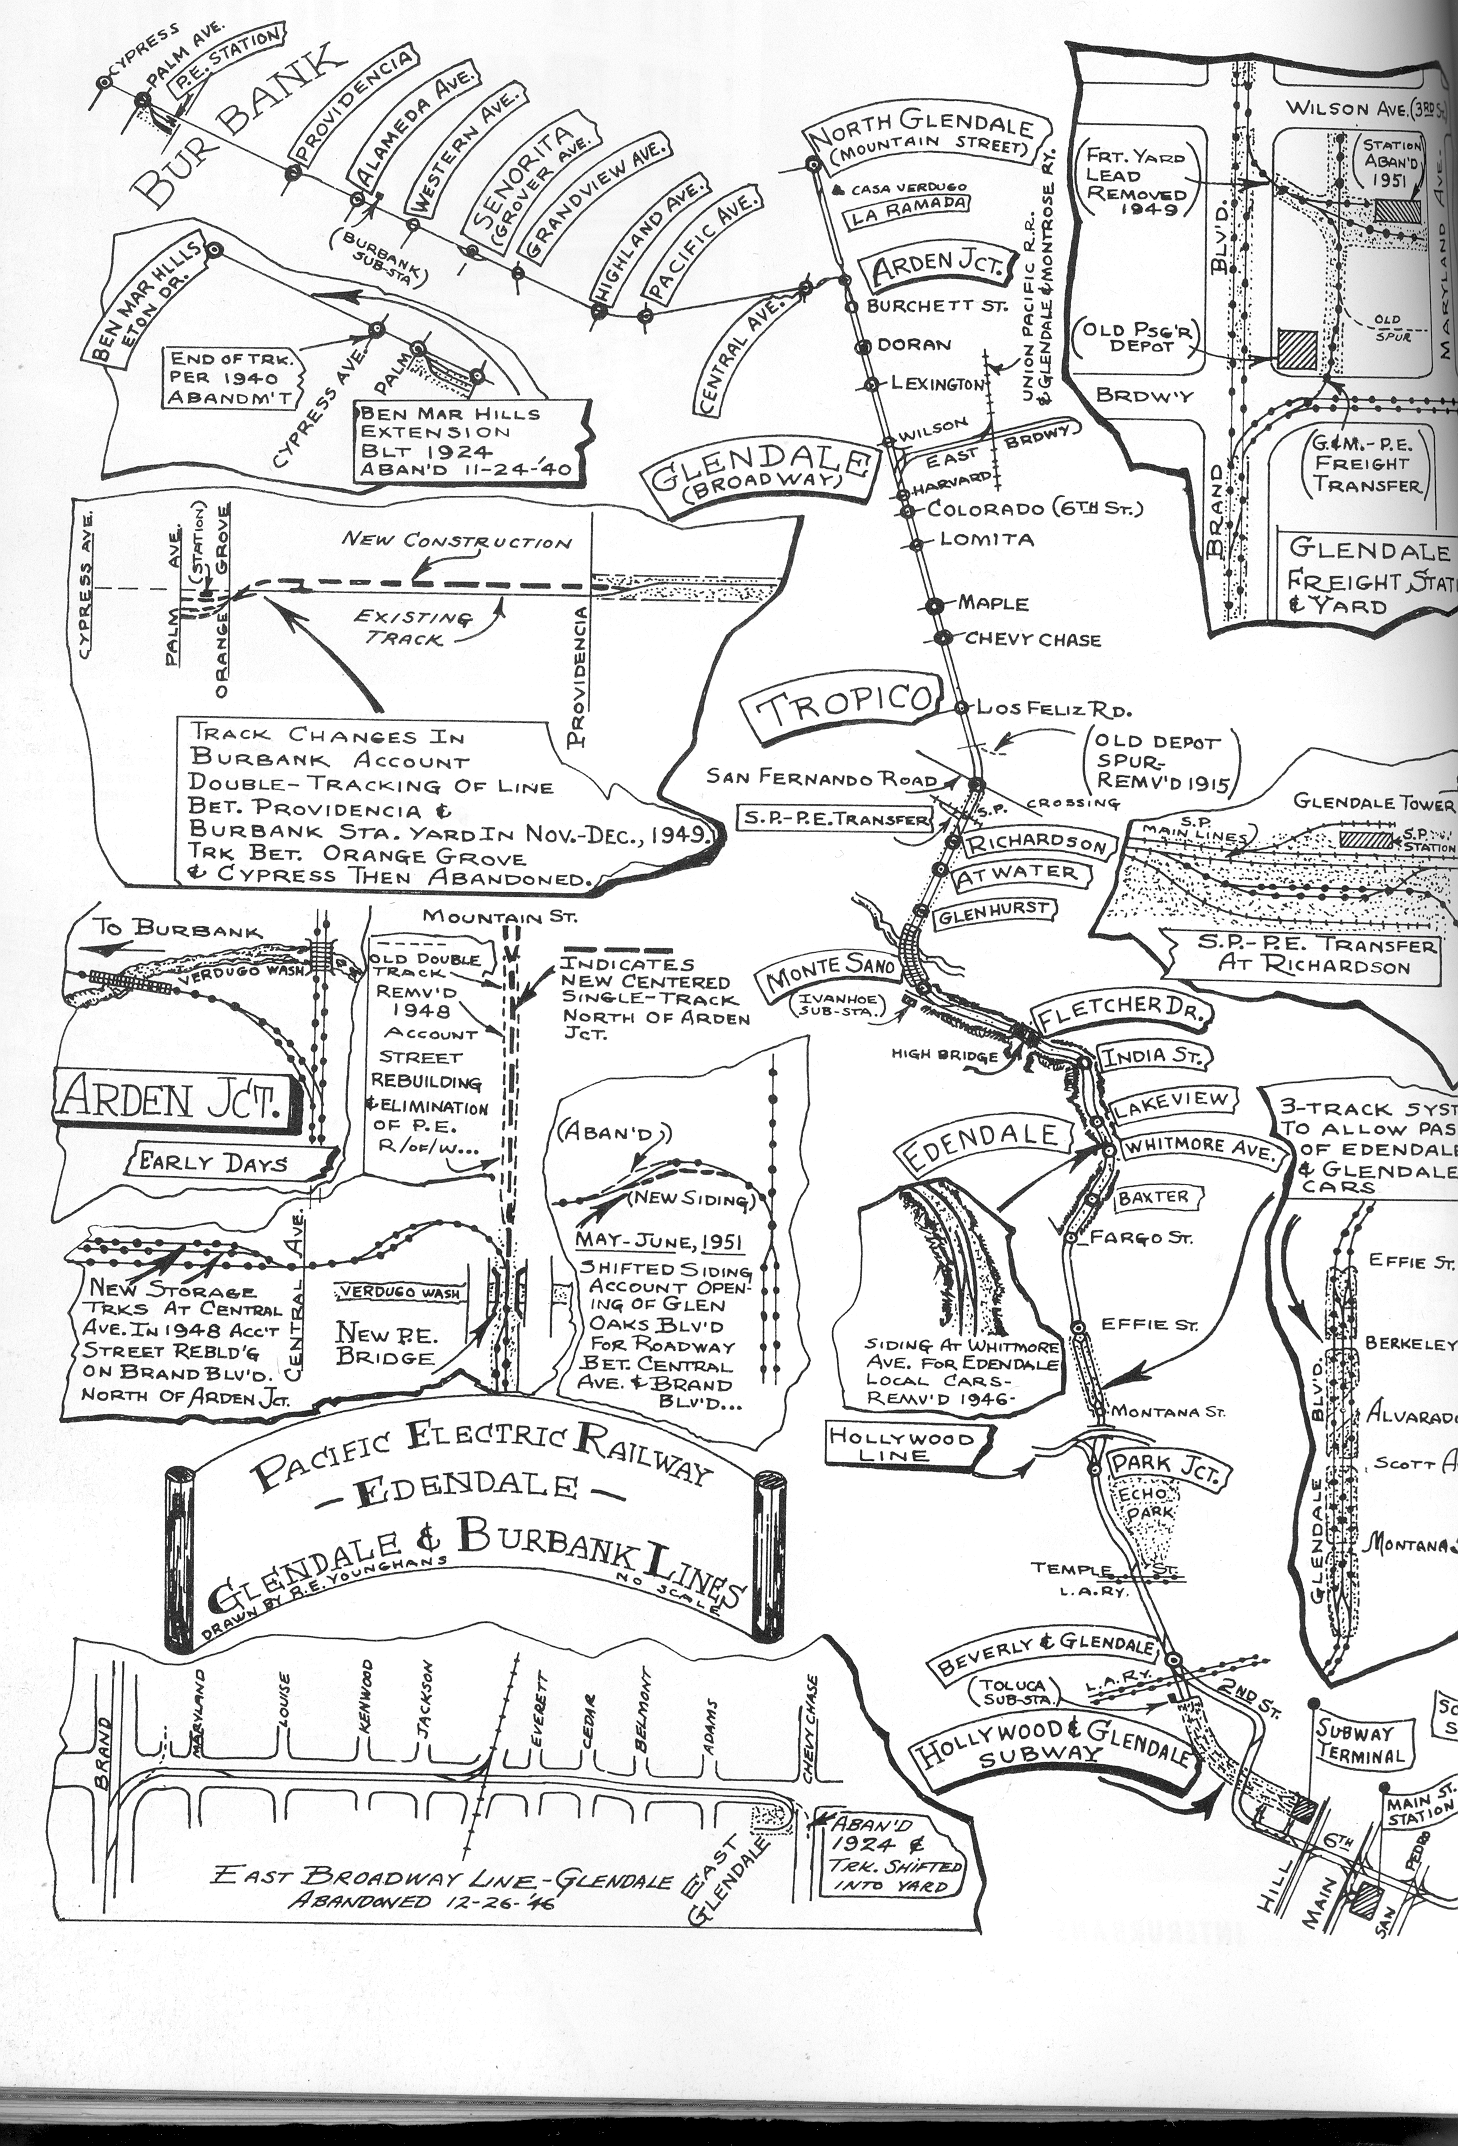 CYPRESS
PALM AVE.
P.E. STATION
BURBANK
PROVIDENCIA
ALAMEDA AVE.
(BURBANK
SUB-STA)
WESTERN AVE.
SENORITA
(GROVER AVE.
GRANDVIEW AVE.
HIGHLAND AVE.
PACIFIC AVE.
CENTRAL AVE.
NORTH GLENDALE
(MOUNTAIN STREET)
CASA VERDUGO
LA RAMADA
ARDEN JCT.
BURCHETT ST.
DORAN
LEXINGTON
UNION PACIFIC R.R.
& GLENDALE & MONTROSE RY.
WILSON
EAST BRDWY
GLENDALE
(BROADWAY)
HARVARD
COLORADO (6TH ST.)
LOMITA
MAPLE
CHEVY CHASE
TROPICO
LOS FELIZ RD.
(OLD DEPOT
SPUR-
REMV'D 1915)
SAN FERNANDO ROAD
S.P. CROSSING
S.P.-P.E. TRANSFER
RICHARDSON
ATWATER
GLENHURST
MONTE SANO
(IVANHOE)
SUB-STA.)
HIGH BRIDGE
FLETCHER DR.
INDIA ST.
LAKEVIEW
EDENDALE
WHITMORE AVE.
BAXTER
FARGO ST.
EFFIE ST.
MONTANA ST.
HOLLYWOOD
LINE
PARK JCT.
ECHO
PARK
TEMPLE ST.
L.A.RY.
BEVERLY & GLENDALE
(TOLUCA
SUB-STA.)
L.A.RY.
2ND ST.
HOLLYWOOD & GLENDALE
SUBWAY
SUBWAY
TERMINAL
MAIN ST.
STATION
6TH
HILL
MAIN
SAN
PEDRO
BEN MAR HILLS
ETON DR.
END OF TRK.
PER 1940
ABANDM'T
CYPRESS AVE.
PALM
BEN MAR HILLS
EXTENSION
BLT 1924
ABAN'D 11-24-'40
CYPRESS AVE.
PALM AVE.
(STATION)
ORANGE GROVE
NEW CONSTRUCTION
EXISTING
TRACK
PROVIDENCIA
TRACK CHANGES IN
BURBANK ACCOUNT
DOUBLE-TRACKING OF LINE
BET. PROVIDENCIA &
BURBANK STA. YARD IN NOV.-DEC., 1949.
TRK BET. ORANGE GROVE
& CYPRESS THEN ABANDONED.
WILSON AVE. (3RD ST.
(FRT. YARD
LEAD
REMOVED
1949)
(STATION
ABAN'D
1951)
BLV'D.
MARYLAND AVE.
(OLD PSG'R
DEPOT)
OLD
SPUR
BRDW'Y
BRAND
(G&M.-P.E.
FREIGHT
TRANSFER)
GLENDALE
FREIGHT STATI
& YARD
GLENDALE TOWER
S.P.
MAIN LINES
S.P.
STATION
S.P.-P.E. TRANSFER
AT RICHARDSON
TO BURBANK
VERDUGO WASH
ARDEN JCT.
EARLY DAYS
MOUNTAIN ST.
OLD DOUBLE
TRACK
REMV'D
1948
ACCOUNT
STREET
REBUILDING
& ELIMINATION
OF P.E.
R/OF/W...
INDICATES
NEW CENTERED
SINGLE-TRACK
NORTH OF ARDEN
JCT.
(ABAN'D)
(NEW SIDING)
MAY-JUNE, 1951
SHIFTED SIDING
ACCOUNT OPEN-
ING OF GLEN
OAKS BLV'D
FOR ROADWAY
BET. CENTRAL
AVE. & BRAND
BLV'D...
NEW STORAGE
TRKS AT CENTRAL
AVE. IN 1948 ACC'T
STREET REBLD'G
ON BRAND BLV'D.
NORTH OF ARDEN JCT.
CENTRAL AVE.
VERDUGO WASH
NEW P.E.
BRIDGE
SIDING AT WHITMORE
AVE. FOR EDENDALE
LOCAL CARS-
REMV'D 1946-
3-TRACK SYST
TO ALLOW PAS
OF EDENDALE
& GLENDALE
CARS
EFFIE ST.
BERKELEY
ALVARADO
SCOTT A
MONTANA S
GLENDALE BLV'D.
PACIFIC ELECTRIC RAILWAY
- EDENDALE -
GLENDALE & BURBANK LINES
DRAWN BY R.E. YOUNGHANS
NO SCALE
BRAND
MARYLAND
LOUISE
KENWOOD
JACKSON
EVERETT
CEDAR
BELMONT
ADAMS
CHEVY CHASE
EAST BROADWAY LINE-GLENDALE
ABANDONED 12-26-'46
EAST
GLENDALE
ABAN'D
1924 &
TRK. SHIFTED
INTO YARD